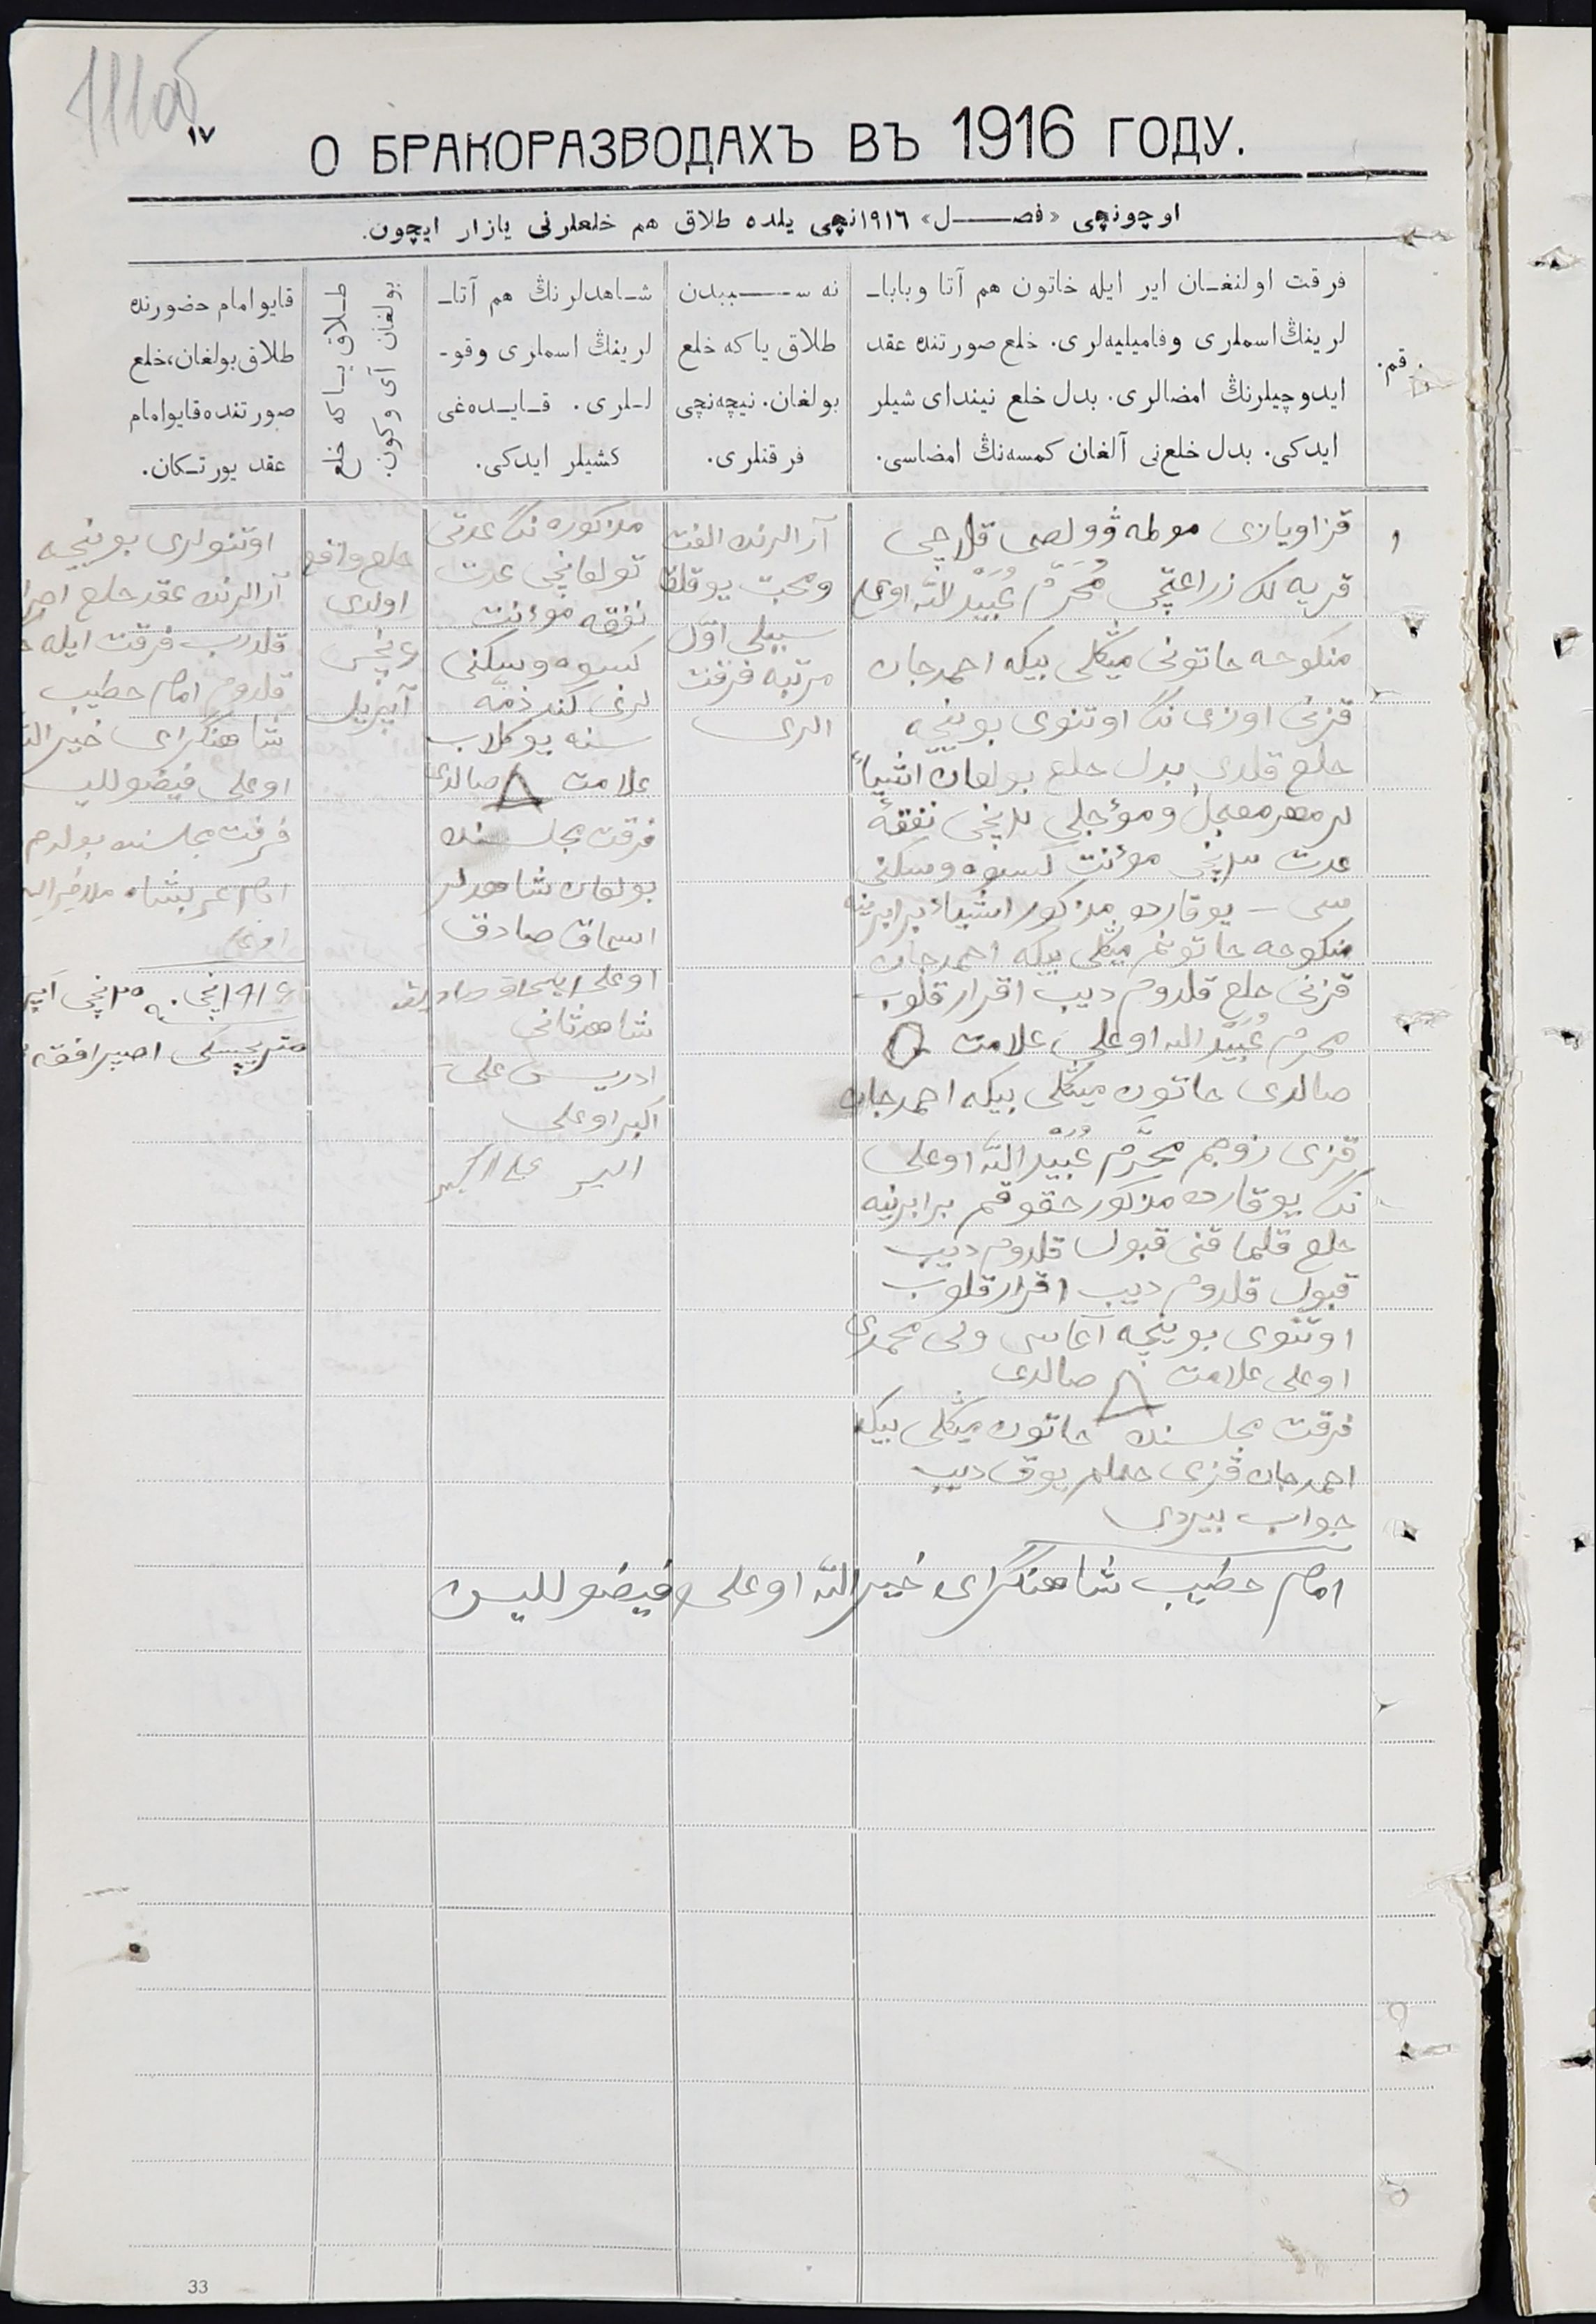 111об
١٧
О БРАКОРАЗВОДАХЪ ВЪ 1916 ГОДУ.
اوچونچی «فصل» ١٩١٦نچی یلده طلاق هم خلعلرنی یازار ایچون.
رقم.
فرقت اولنغان ایر ایله خاتون هم آتا وبابا-
لرینڭ اسملری وفامیلیه‌لری. خلع صورتنده عقد
ایدوچیلرنڭ امضالری. بدل خلع نیندای شیلر
ایدکی. بدل خلع‌نی آلغان کمسه‌نڭ امضاسی.
نه سببدن
طلاق یاکه خلع
بولغان. نیچه‌نچی
فرقتلری.
شاهدلرنڭ هم آتا-
لرینڭ اسملری وقو-
للری. قایده‌غی
کشیلر ایدکی.
طلاق یاکه خلع
بولغان آی وکون.
قایو امام حضورنده
طلاق بولغان، خلع
صورتنده قایو امام
عقد یورتکان.
١
قزاویازی موطمه ڤوولصی قلاچی
قریه لک زراعتچی مُحَرَّم عُبَیْدُ اللّه اوغلی
منکوحه خاتونی میثکلی بیکه احمدجان
قزنی اوزی نک اوتنوی بوینچه
خلع قلدی بدل خلع بولغان اشیاءً
لر مهر معجل ومؤجلی نفقهٔ
عدت مؤنت کسوه وسکنی
سی - یوقارده مذکور اشیاء برابرینه
منکوحه خاتونم میثکلی بیکه احمدجان
قزنی خلع قلدوم دیب اقرار قلوب
محرم عُبَیْدُ اللّه اوغلی علامت
صالدی خاتون میثکلی بیکه احمدجان
قزی زوجم محَّرم عُبَیْدُ اللّه اوغلی
نک یوقارده مذکور حقوقم برابرینه
خلع قلماقنی قبول قلدوم دیب
قبول قلدوم دیب اقرار قلوب
اوتنوی بوینچه آغاسی ولی محمدی
اوغلی علامت صالدی
فرقت مجلسنده خاتون میثکلی بیکه
احمدجان قزی حملم یوق دیب
جواب بیردی
امام خطیب شاهنکرای خیر اللّه اوغلی فیض اللیس
آرالرنده الفت
ومحبت یوقلق
سببلی اوّل
مرتبه فرقت
الدی
مذکوره نک عدتی
تولغانچی عدت
نفقه مؤنت
کسوه وسکنی
لرنی کند ذمّه
سنه یوکلاب
علامت صالدی
فرقت مجلسنده
بولغان شاهدلر
اسحاق صادق
اوغلی اسحاق صادیق
شاهد ثانی
ادریس علی
اکبر اوغلی
علی اکبر
خلع واقع
اولدی
نچی
آپریل
اوتنولری بوینچه
آرالرنده عقد خلع اجرا
قلدرب فرقت ایله
قلدوم امام خطیب
شاهنکرای خیر اللّه
اوغلی فیض اللیس
فرقت مجلسنده بولدم
اوغلی
١٩١٦نچی
متریچسکی
33